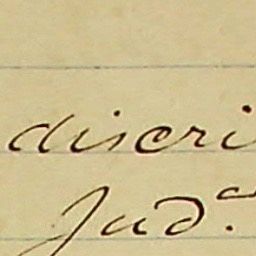 discri
Jud.a